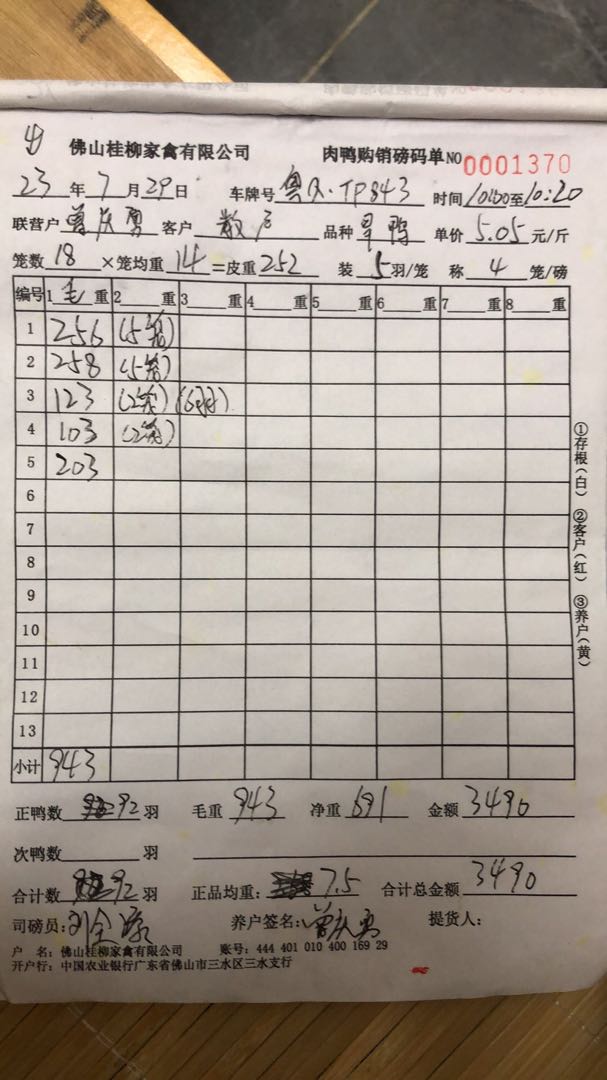 佛山桂柳家禽有限公司 肉鸭购销磅码单NO 0001370
23年7月29日 车牌号 粤Q·TP843 时间10:00至10:20
联营户 曾庆勇 客户 散户 品种 旱鸭 单价 5.05 元/斤
笼数 18 ×笼均重 14 =皮重 252 装 5 羽/笼 称 4 笼/磅
编号 1 毛 重 2 重 3 重 4 重 5 重 6 重 7 重 8 重
1 256 (5笼)
2 258 (5笼)
3 123 (2笼) (6羽)
4 103 (2笼)
5 203
6
7
8
9
10
11
12
13
小计 943
①存根(白) ②客户(红) ③养户(黄)
正鸭数 92 羽 毛重 943 净重 691 金额 3490
次鸭数 羽
合计数 92 羽 正品均重: 7.5 合计总金额 3490
司磅员: 养户签名: 曾庆勇 提货人:
户 名: 佛山桂柳家禽有限公司 账号: 444 401 010 400 169 29
开户行: 中国农业银行广东省佛山市三水区三水支行